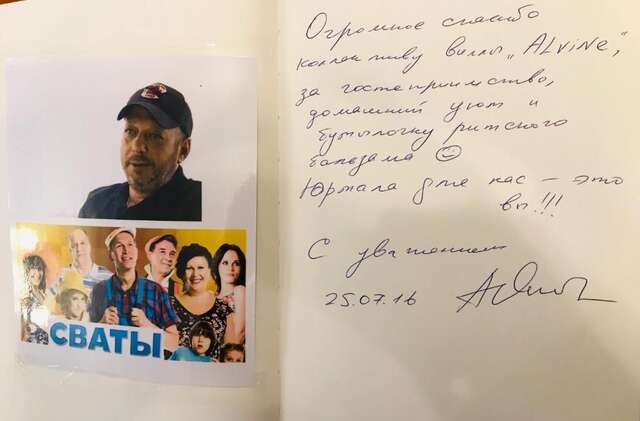 СВАТЫ
Огромное спасибо
коллективу виллы „ALViNe",
за гостеприимство,
домашний уют и
бутылочку рижского
бальзама ☺
Юрмала для нас – это
вы!!!
С уважением
25.07.16